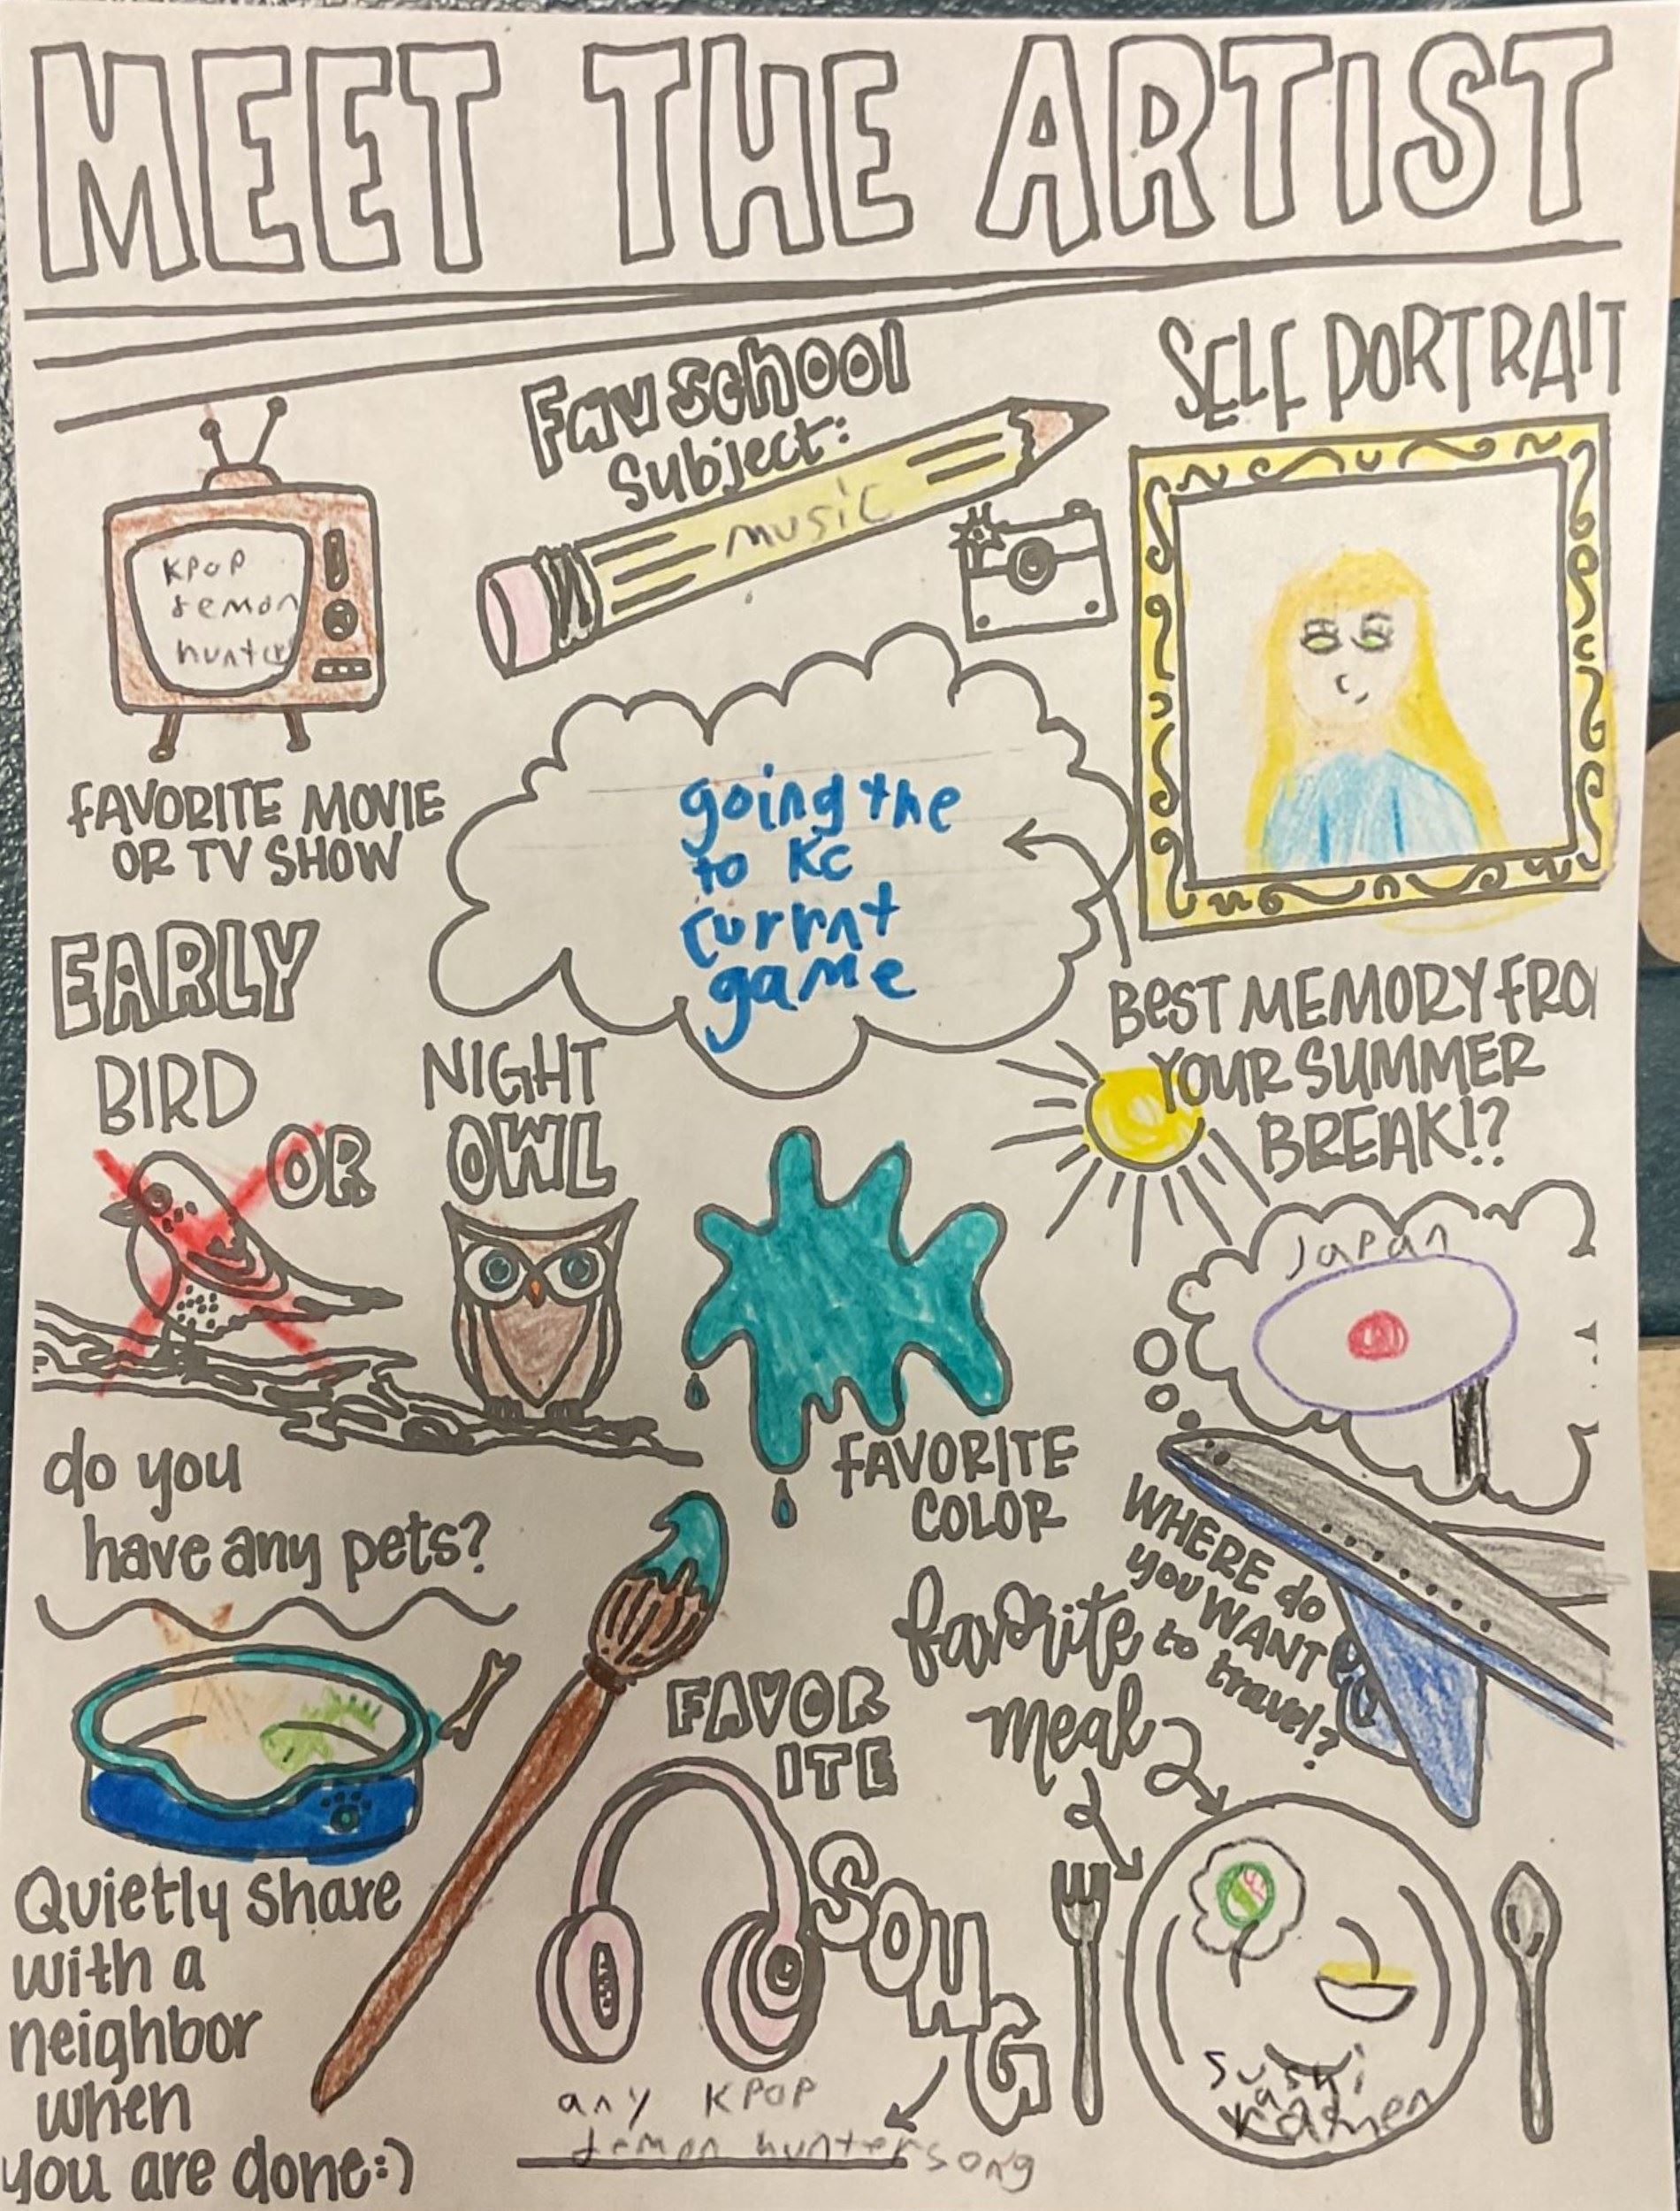 MEET THE ARTIST
Fav School
Subject:
music
SELF PORTRAIT
KPOP
demon
hunter
FAVORITE MOVIE
OR TV SHOW
going the
to KC
currnt
game
BEST MEMORY FRO
YOUR SUMMER
BREAK!?
EARLY
BIRD
OR
NIGHT
OWL
FAVORITE
COLOR
Japan
WHERE do
you WANT
to travel?
do you
have any pets?
favorite
meal
sushi
and
ramen
FAVOR
ITE
SONG
any KPOP
demon hunter song
Quietly share
with a
neighbor
when
you are done:)